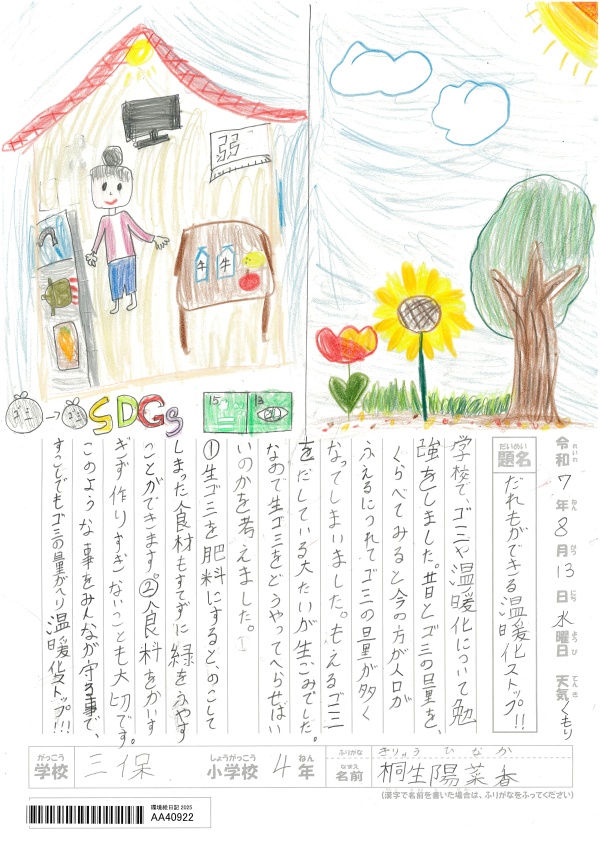 弱
牛 牛
ゴミ → ゴミ SDGs
15 13
令和 7 年 8 月 13 日 水 曜日 天気 くもり
れいわ ねん がつ にち ようび てんき
だいめい
題名
だれもができる温暖化ストップ!!
学校で、ゴミや温暖化について勉
強をしました。昔とゴミの量を、
くらべてみると今の方が人口が
ふえるにつれてゴミの量が多く
なってしまいました。もえるゴミ
をだしている大たいが生ごみでした。
なので生ゴミをどうやってへらせばい
いのかを考えました。
①生ゴミを肥料にすると、のこして
しまった食材もすてずに緑をふやす
ことができます。②食料をかいす
ぎず作りすぎないことも大切です。
このような事をみんなが守る事で、
すこしでもゴミの量がへり温暖化ストップ!!!
がっこう
学校 三保
しょうがっこう
小学校 4 年
ねん
ふりがな きりゅう ひなか
なまえ
名前 桐生陽菜香
(漢字で名前を書いた場合は、ふりがなをふってください)
環境絵日記 2025
AA40922